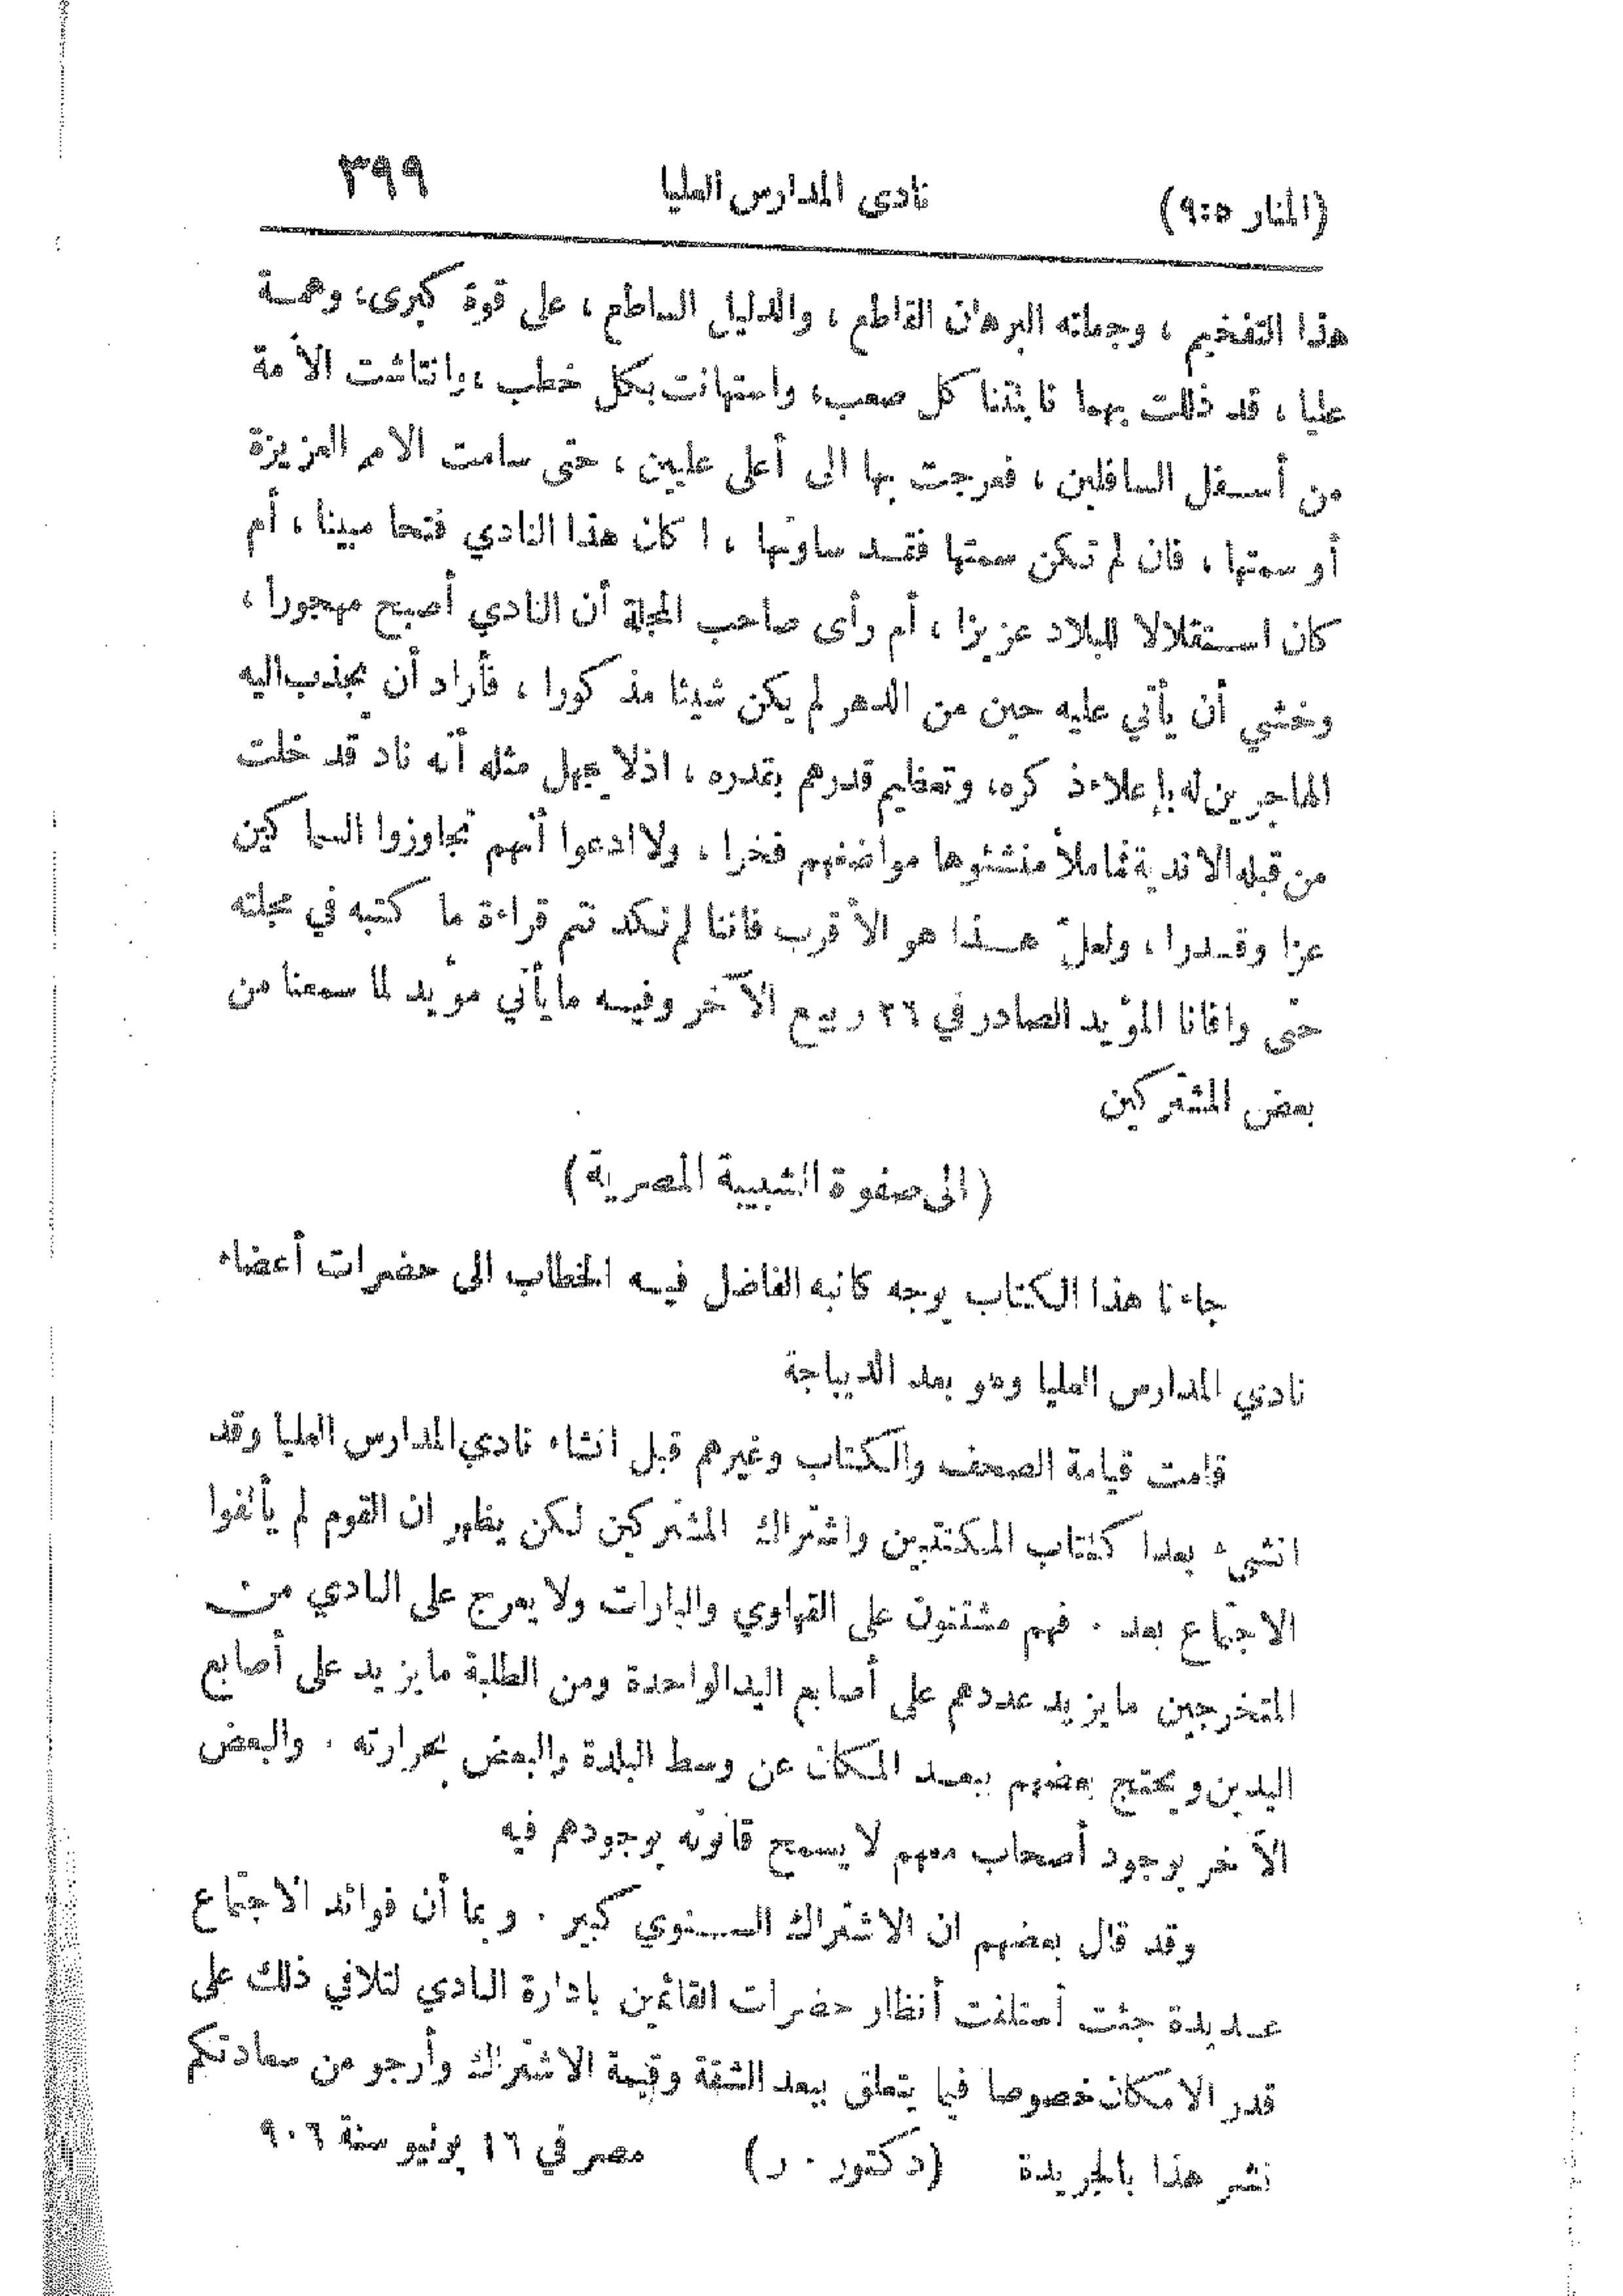 (المنار ٥:٩) نادى المدارس العليا ٣٩٩
هذا التفخيم ، وجعلته البرهان القاطع ، والدليل الساطع ، على قوة كبرى، وهمة
عليا ، قد ذللت بهما نابتتنا كل صعب، واستهانت بكل خطب ،وانتاشت الأمة
من أسفل السافلين ، فعرجت بها الى أعلى عليين ، حتى سامت الامم العزيزة
أو سمتها ، فان لم تكن سمتها فقد ساوتها ، ا كان هذا النادي فتحا مبينا ، أم
كان استقلالا للبلاد عزيزا ، أم رأى صاحب المجلة أن النادي أصبح مهجورا ،
وخشي أن يأتي عليه حين من الدهر لم يكن شيئا مذكورا ، فأراد أن يجذب اليه
الهاجرين له بإعلاء ذكره، وتعظيم قدرهم بقدره ، اذلا يجهل مثله أنه ناد قد خلت
من قبله الاندية فماملأ منشئوها مواضغهم فخرا ، ولا ادعوا أنهم تجاوزوا السماكين
عزا وقدرا ، ولعلّ هذا هو الأقرب فاننا لم نكد نتم قراءة ما كتبه في مجلته
حتى وافانا المؤيد الصادر في ٢٦ ربيع الآخر وفيه مايأتي مؤيد لما سمعنا من
بعض المشتركين
(الى صفوة الشبيبة المصرية)
جاءنا هذا الكتاب يوجه كاتبه الفاضل فيه الخطاب الى حضرات أعضاء
نادي المدارس العليا وهو بعد الديباجة
قامت قيامة الصحف والكتاب وغيرهم قبل انشاء نادي المدارس العليا وقد
انشىء بعدا كتتاب المكتتبين واشتراك المشتركين لكن يظهر ان القوم لم يألفوا
الاجتماع بعد . فهم مشتتون على القهاوي والبارات ولا يعرج على النادي من
المتخرجين مايزيد عددهم على أصابع اليد الواحدة ومن الطلبة مايزيد على أصابع
اليدين ويحتج بعضهم ببعد المكان عن وسط البلدة والبعض بحرارته . والبعض
الآخر بوجود أصحاب معهم لا يسمح قانونه بوجودهم فيه
وقد قال بعضهم ان الاشتراك السنوي كبير . وبما أن فوائد الاجتماع
عديدة جئت أستلفت أنظار حضرات القائمين بادارة النادي لتلافي ذلك على
قدر الامكان خصوصا فيما يتعلق ببعد الشقة وقيمة الاشتراك وأرجو من سعادتكم
نشر هذا بالجريدة (دكتور . ر) مصر في ١٦ يونيو سنة ٩٠٦